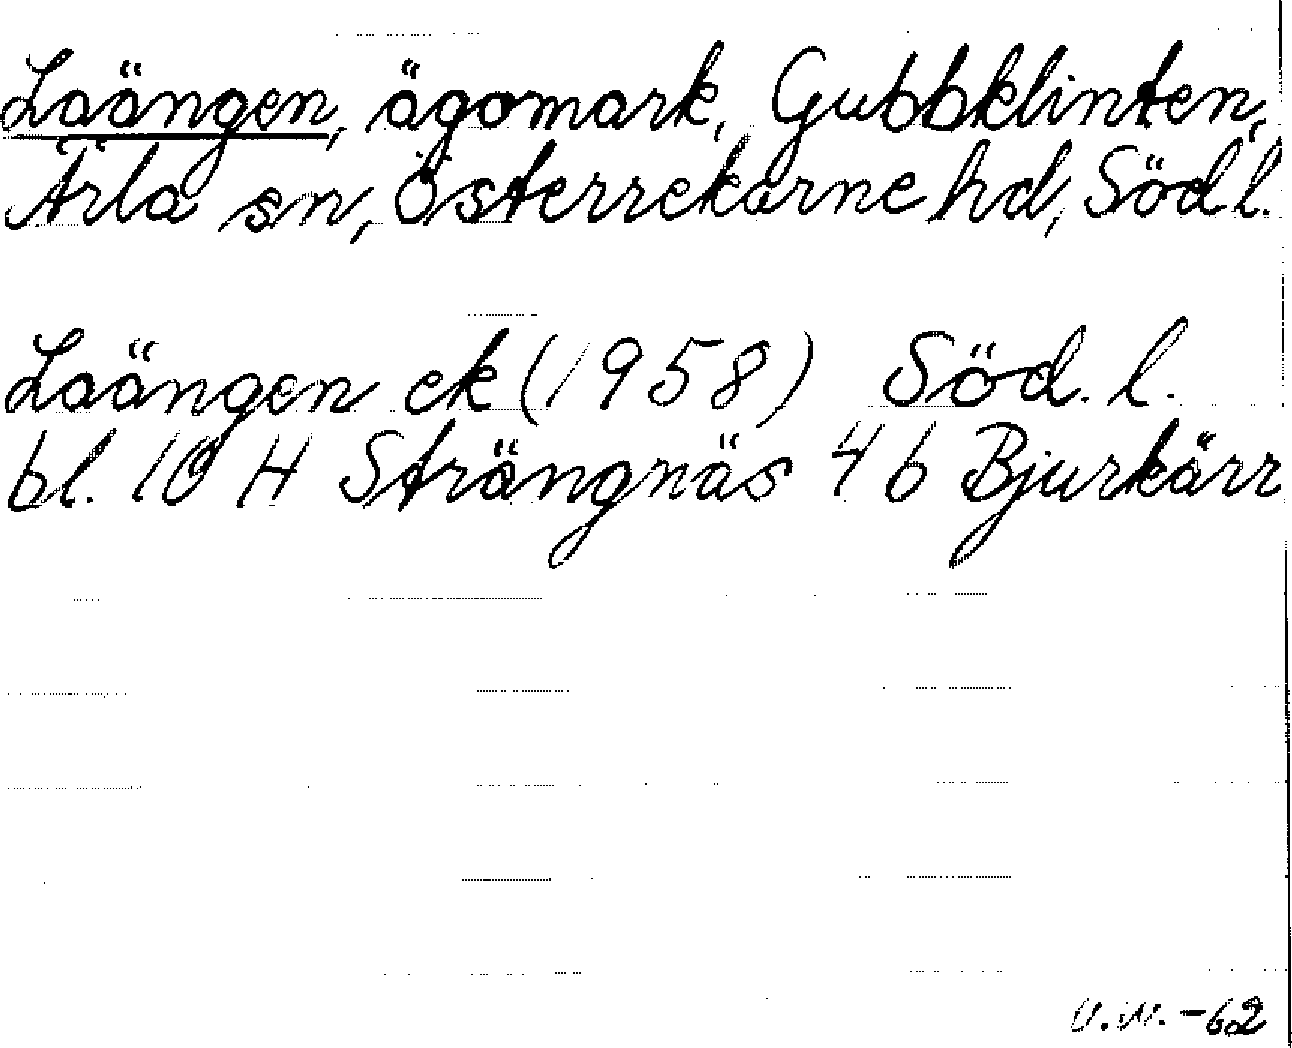 Laängen, ägomark, Gubbklinten,
Ärla sn, Österrekarne hd, Södl.
Laängen ek (1958) Söd. l.
bl. 10 H Strängnäs 4 b Bjurkärr
-62